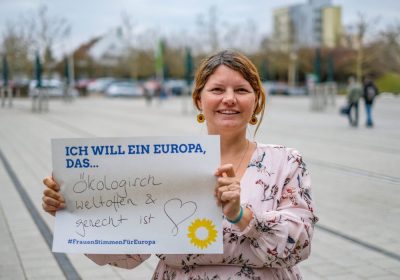 ICH WILL EIN EUROPA,
DAS...
Ökologisch
weltoffen &
gerecht ist
#FrauenStimmenFürEuropa